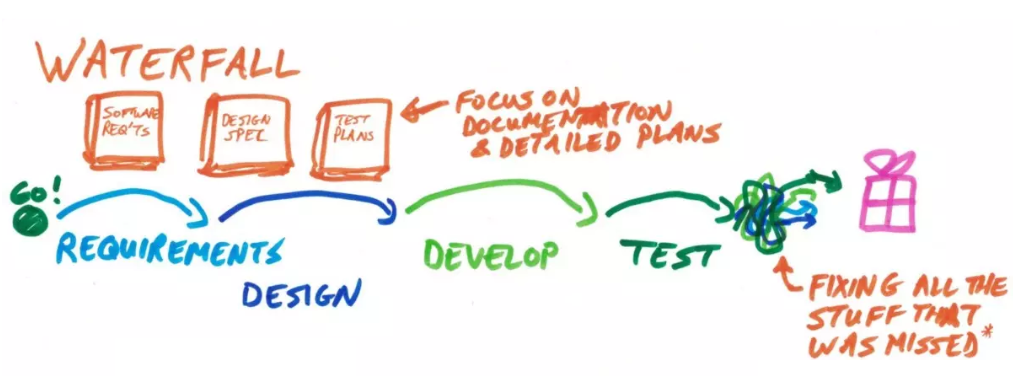 WATERFALL
SOFTWARE
REQ'TS
DESIGN
SPEC
TEST
PLANS
FOCUS ON
DOCUMENTATION
& DETAILED PLANS
GO!
REQUIREMENTS
DESIGN
DEVELOP
TEST
FIXING ALL THE
STUFF THAT
WAS MISSED*